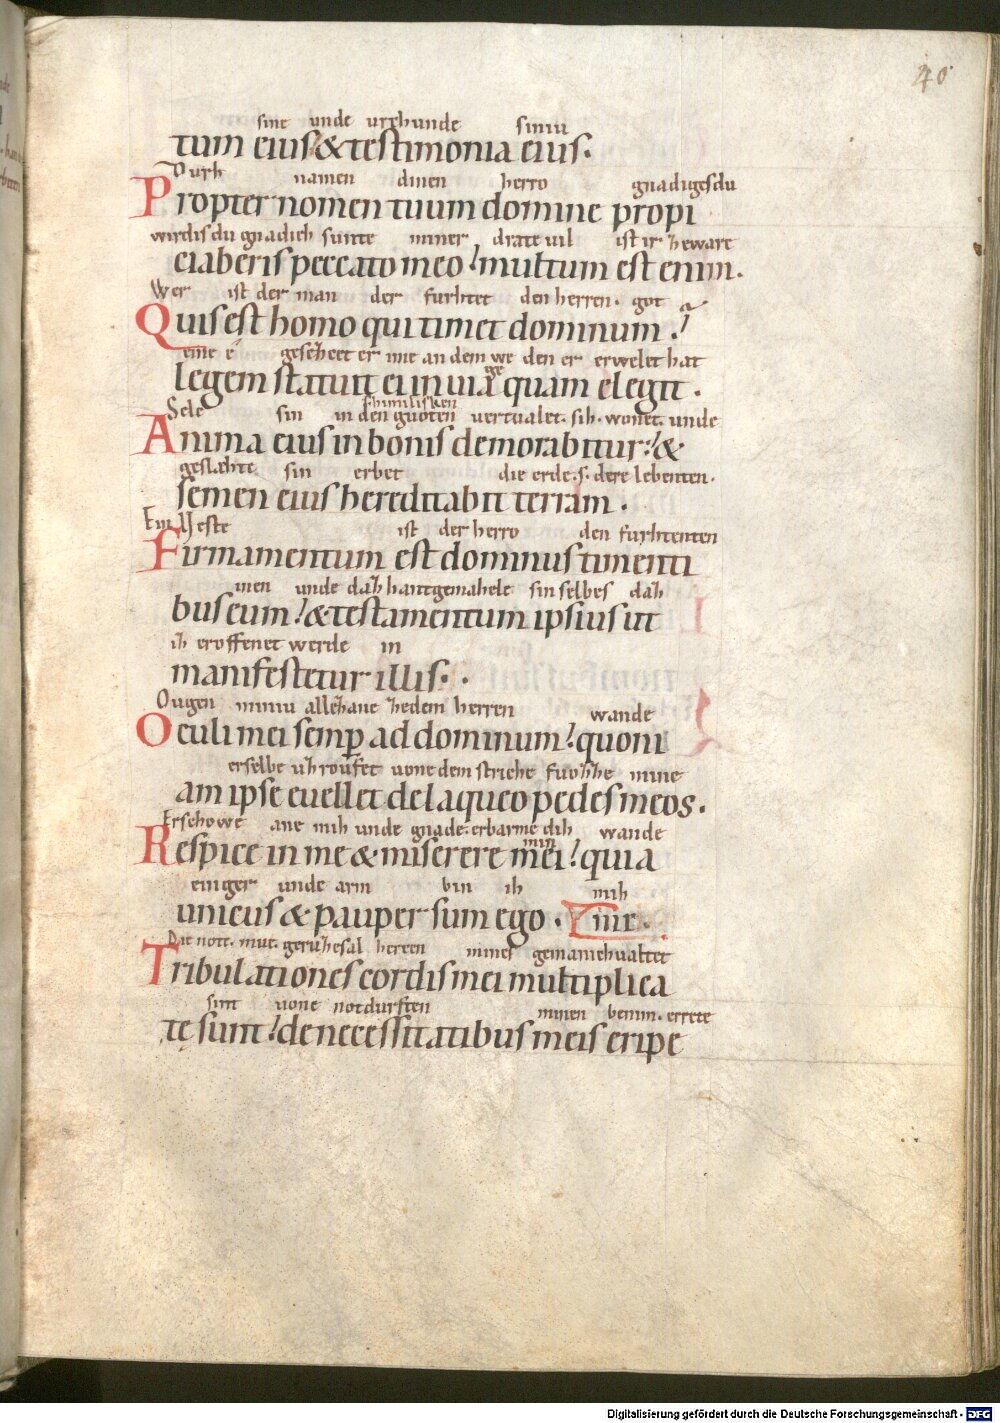 40
sine unde urchunde siniu
tum eius & testimonia eius.
Durh namen dinen herro gnadigesdu
Propter nomen tuum domine propi
wirdis du gnadich sunte miner drate uil ist ir zeware
ciaberis peccato meo! multum est enim.
Wer ist der man der furhtet den herren. got
Quis est homo qui timet dominum.
eine e gesezzet er ime an dem wege den er erwelet hat
legem statuit ei in uia quam elegit.
Sele sin in den guoten uertualet. sih. wonet. unde
Anima eius in bonis demorabitur! &
geslæhte sin erbet die erde .s. dere lebenten.
semen eius hereditabit terram.
Ein Ueste ist der herro den furhtenten
Firmamentum est dominus timenti
inen unde daz hantgemahele sin selbes daz
bus eum! & testamentum ipsius ut
iz eroffenet werde in
manifestetur illis.
Ougen miniu allezane zedem herren wande
Oculi mei semp̄ ad dominum! quoni
erselbe uzroufet uone dem striche fuozze mine
am ipse euellet de laqueo pedes meos.
Erschowe ane mih unde gnade. erbarme dih min wande
Respice in me & miserere mei! quia
einiger unde arm bin ih mih
unicus & pauper sum ego. me.
Die nott. mue. geruhesal herzen mines gemanichualtet
Tribulationes cordis mei multiplica
sint uone notdurften minen benim. errete
tę sunt! de necessitatibus meis eripe
Digitalisierung gefördert durch die Deutsche Forschungsgemeinschaft - DFG